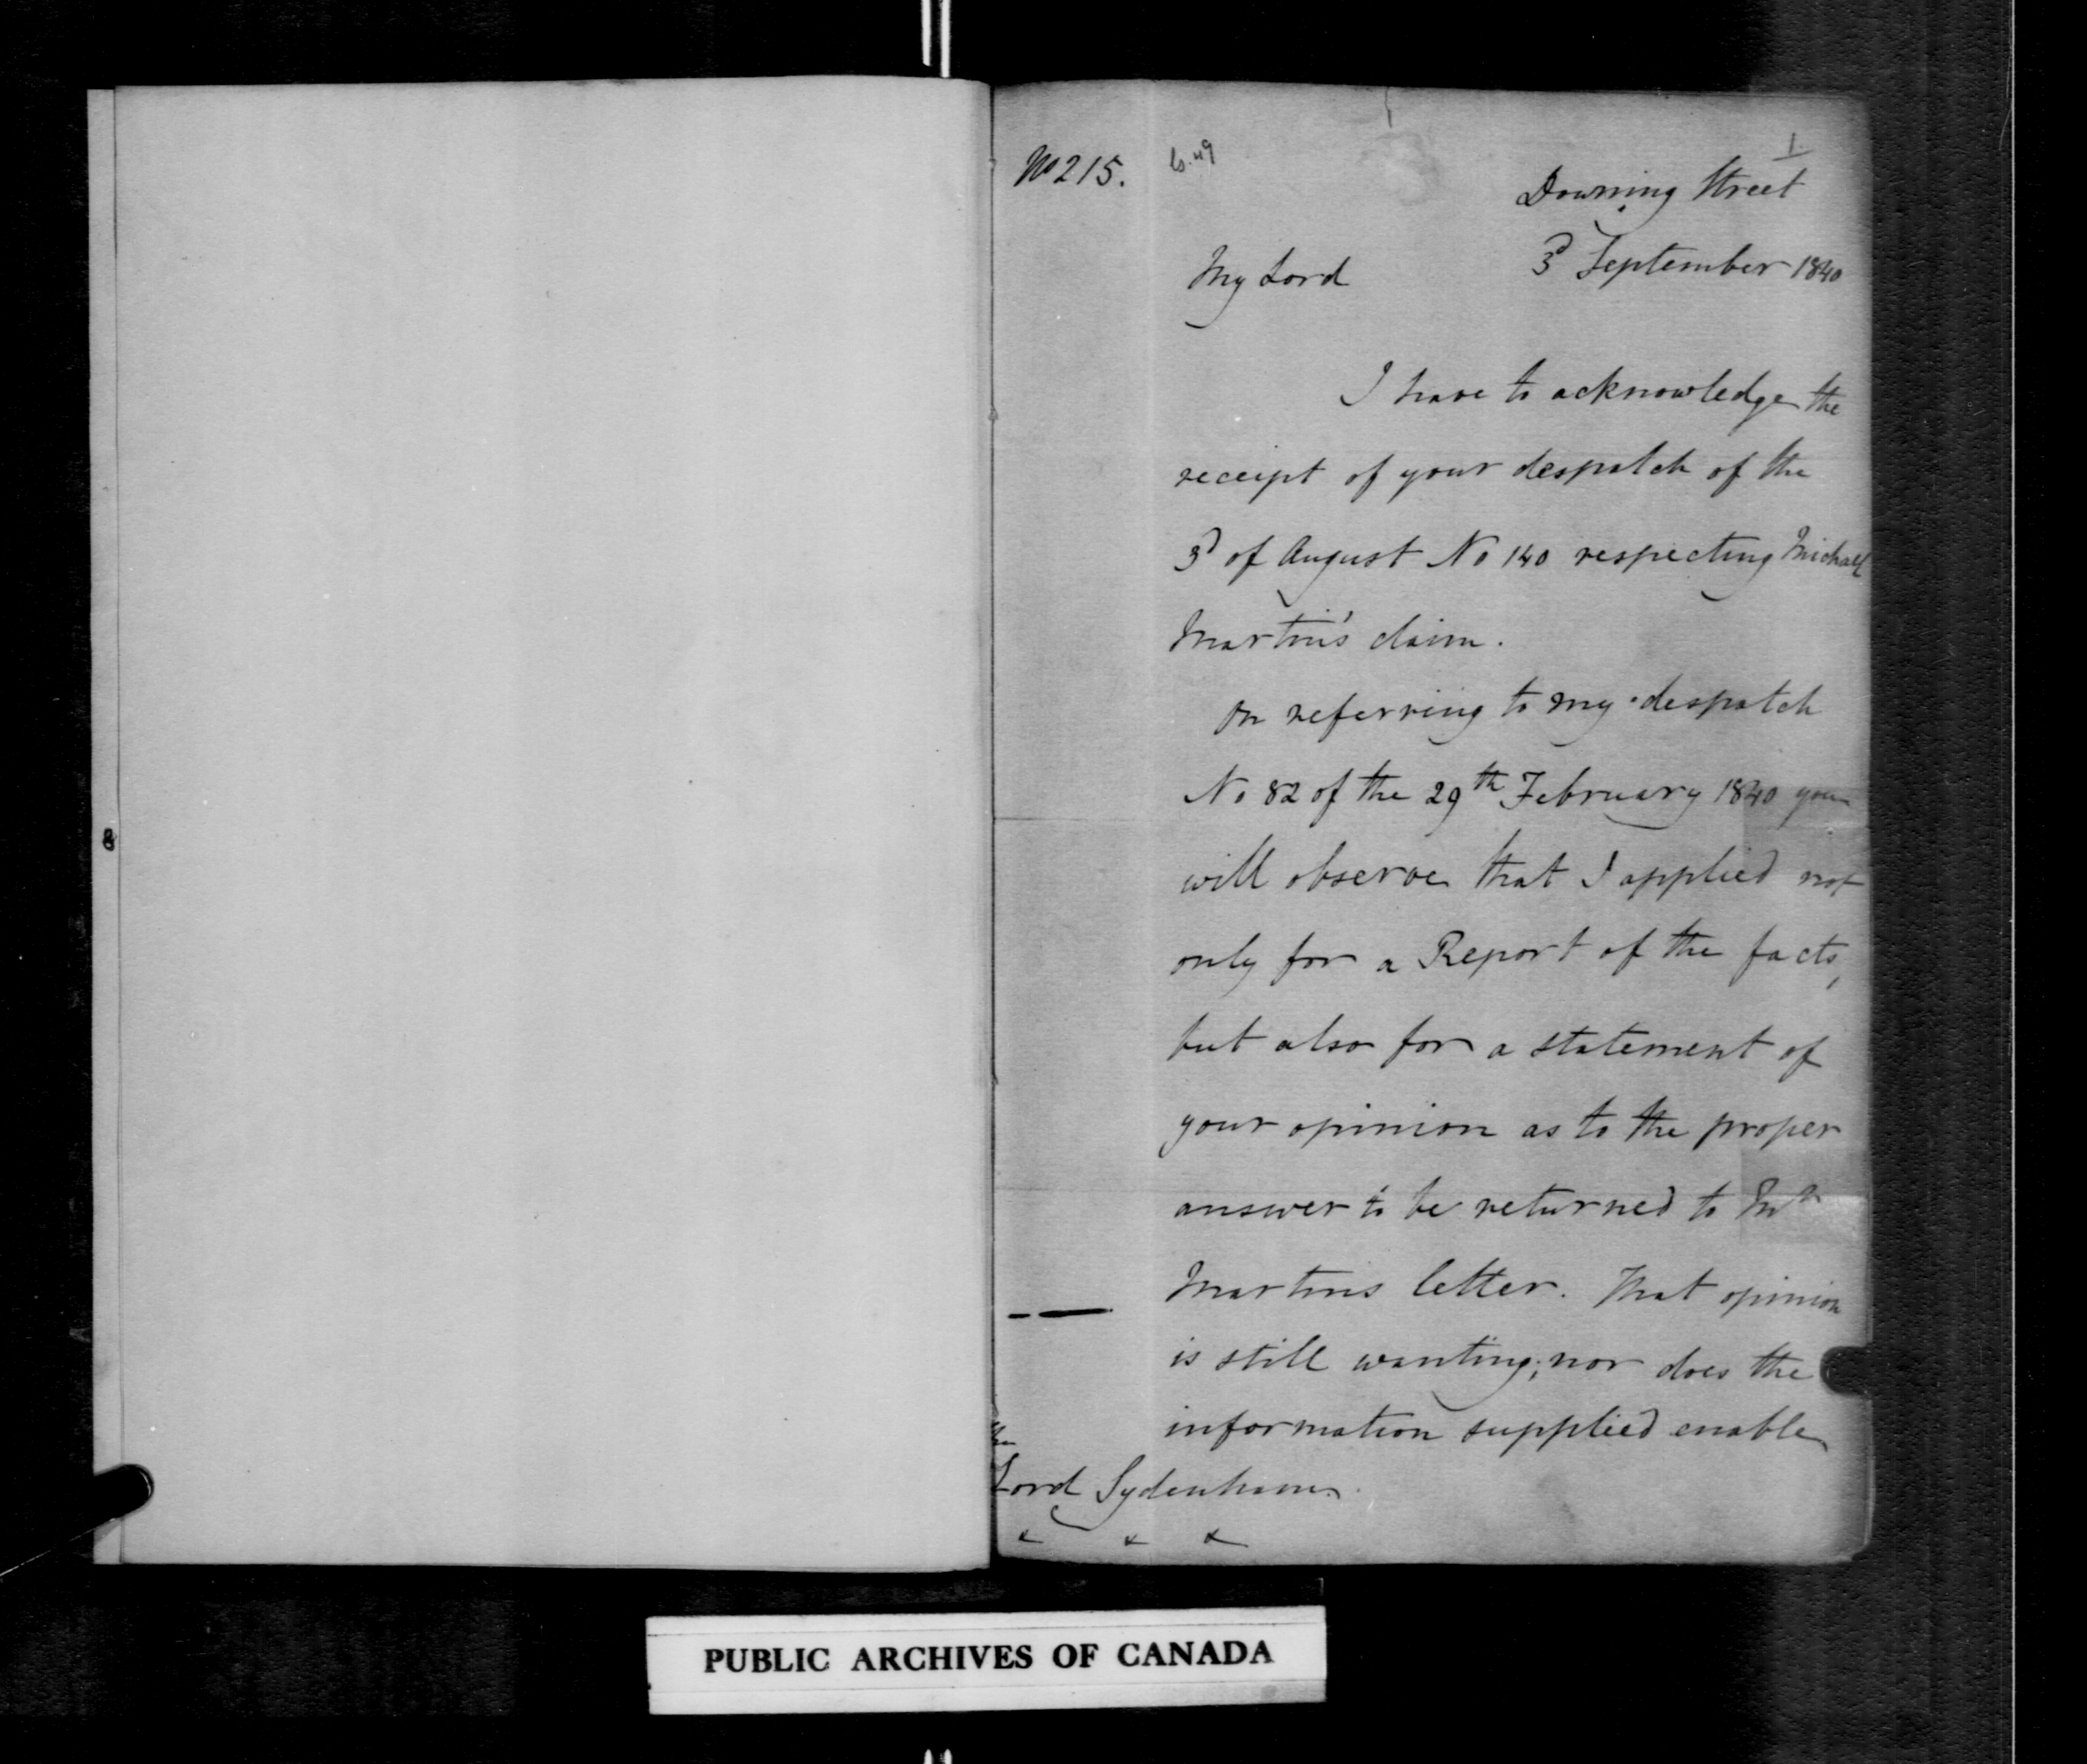 No 215.
1
Downing Street
3d September 1840
My Lord
I have to acknowledge the
receipt of your despatch of the
3d of August No 140 respecting Michael
Martin's claim.
On referring to my despatch
No 82 of the 29th February 1840 you
will observe that I applied not
only for a Report of the facts,
but also for a statement of
your opinion as to the proper
answer to be returned to Mr
Martins letter. That opinion
is still wanting; nor does the
information supplied enable
Lord Sydenham
& & &
PUBLIC ARCHIVES OF CANADA